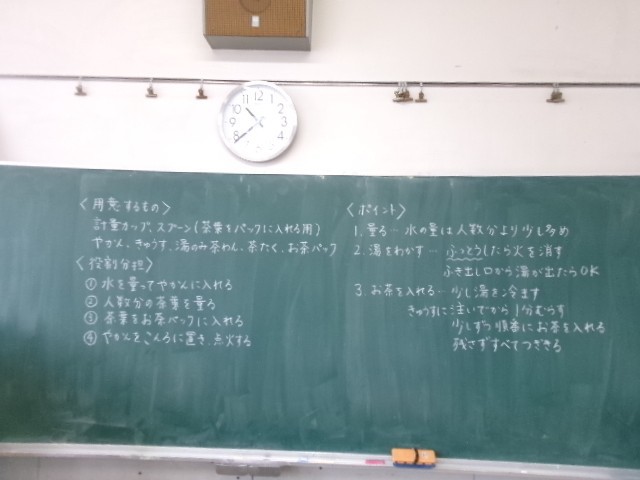 〈用意するもの〉
計量カップ、スプーン(茶葉をパックに入れる用)
やかん、きゅうす、湯のみ茶わん、茶たく、お茶パック
〈役割分担〉
① 水を量ってやかんに入れる
② 人数分の茶葉を量る
③ 茶葉をお茶パックに入れる
④ やかんをこんろに置き、点火する
〈ポイント〉
1. 量る… 水の量は人数分より少し多め
2. 湯をわかす… ふっとうしたら火を消す
ふき出し口から湯が出たらOK
3. お茶を入れる… 少し湯を冷ます
きゅうすに注いでから1分むらす
少しずつ順番にお茶を入れる
残さずすべてつぎきる
11 12 1
10 2
9 3
8 4
7 6 5